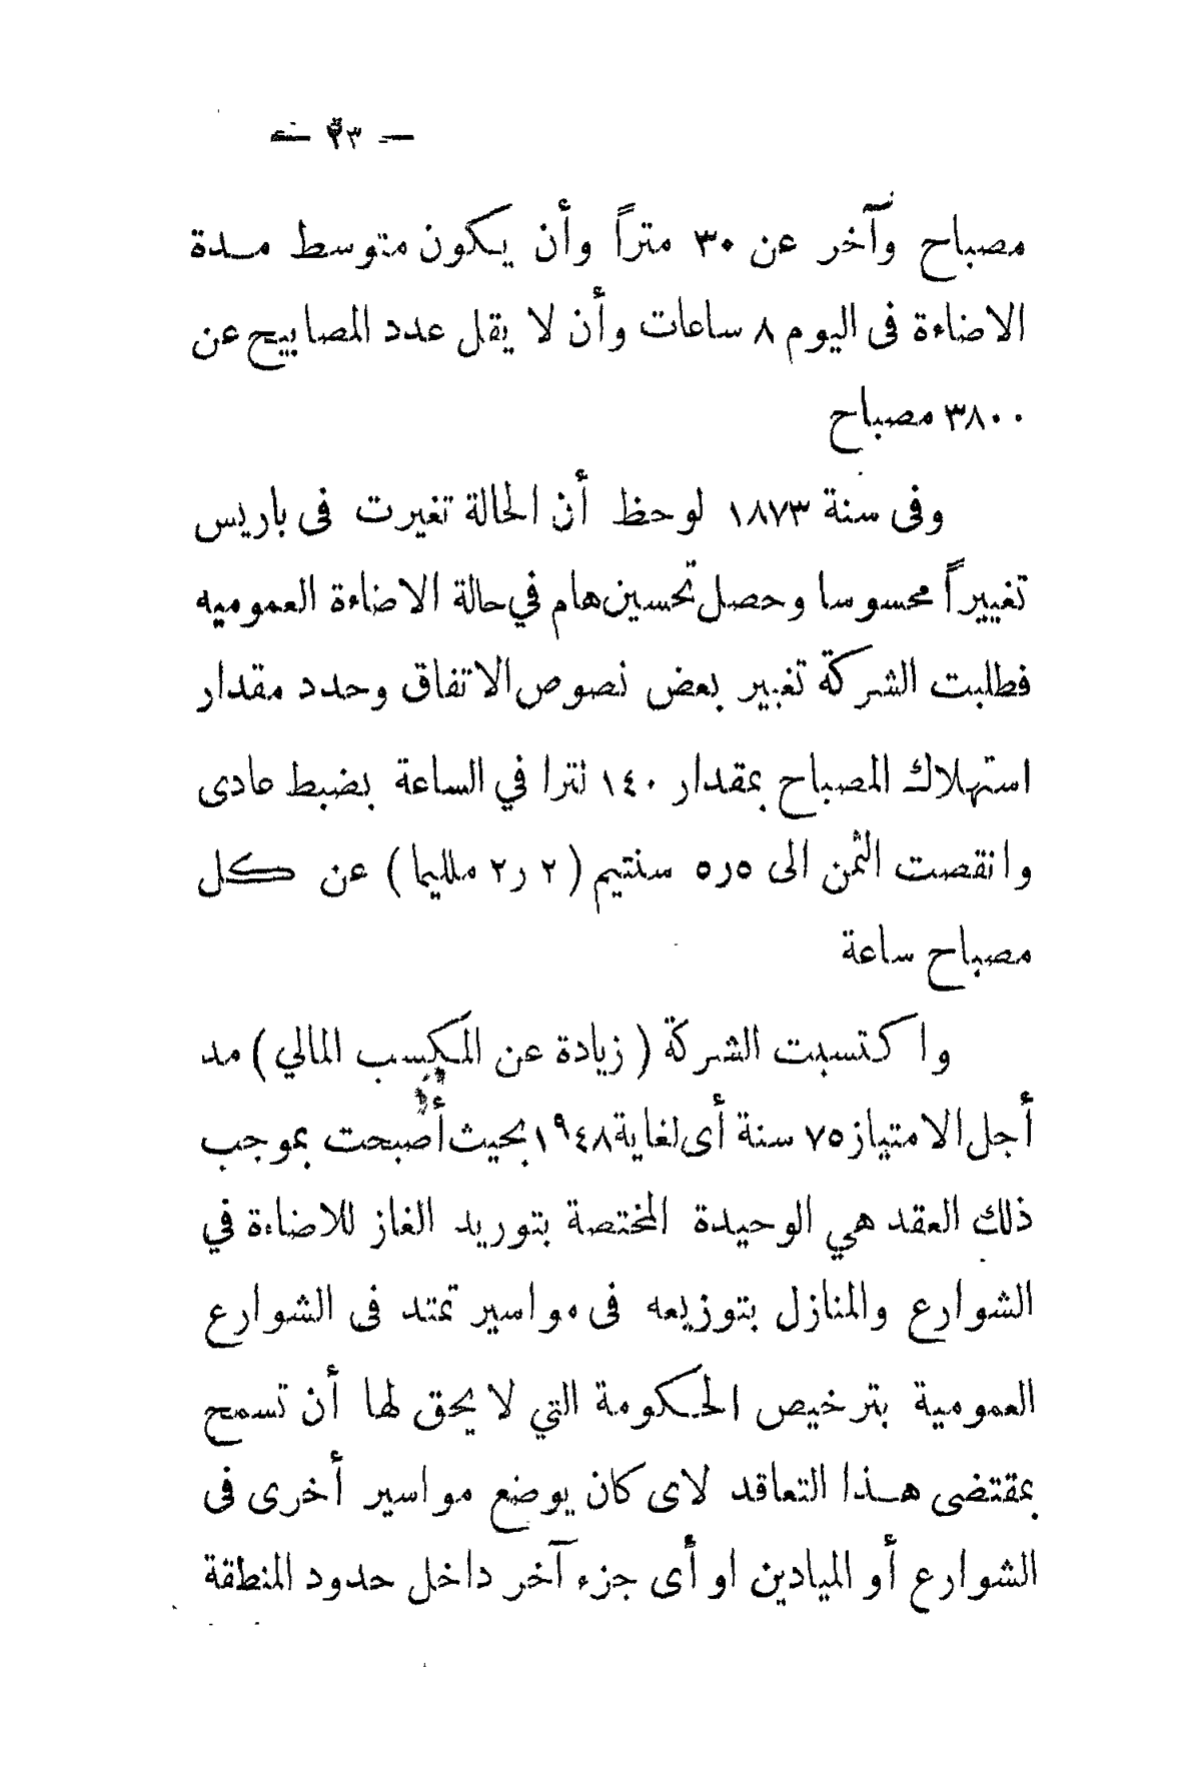 مصباح وآخر عن ٣٠ متراً وأن يكون متوسط مدة
الاضاءة فى اليوم ٨ ساعات وأن لا يقل عدد المصابيح عن
٣٨٠٠ مصباح
وفى سنة ١٨٧٣ لوحظ أن الحالة تغيرت فى باريس
تغييراً محسوسا وحصل تحسين هام في حالة الاضاءة العموميه
فطلبت الشركة تغيير بعض نصوص الاتفاق وحدد مقدار
استهلاك المصباح بمقدار ١٤٠ لترا في الساعة بضبط عادى
وانقصت الثمن الى ٥ر٥ سنتيم (٢ر٢ مليما) عن كل
مصباح ساعة
واكتسبت الشركة (زيادة عن المكسب المالي) مد
أجل الامتياز ٧٥ سنة أى لغاية ١٩٤٨ بحيث أصبحت بموجب
ذلك العقد هي الوحيدة المختصة بتوريد الغاز للاضاءة في
الشوارع والمنازل بتوزيعه فى مواسير تمتد فى الشوارع
العمومية بترخيص الحكومة التي لا يحق لها أن تسمح
بمقتضى هذا التعاقد لاى كان يوضع مواسير أخرى فى
الشوارع أو الميادين او أى جزء آخر داخل حدود المنطقة